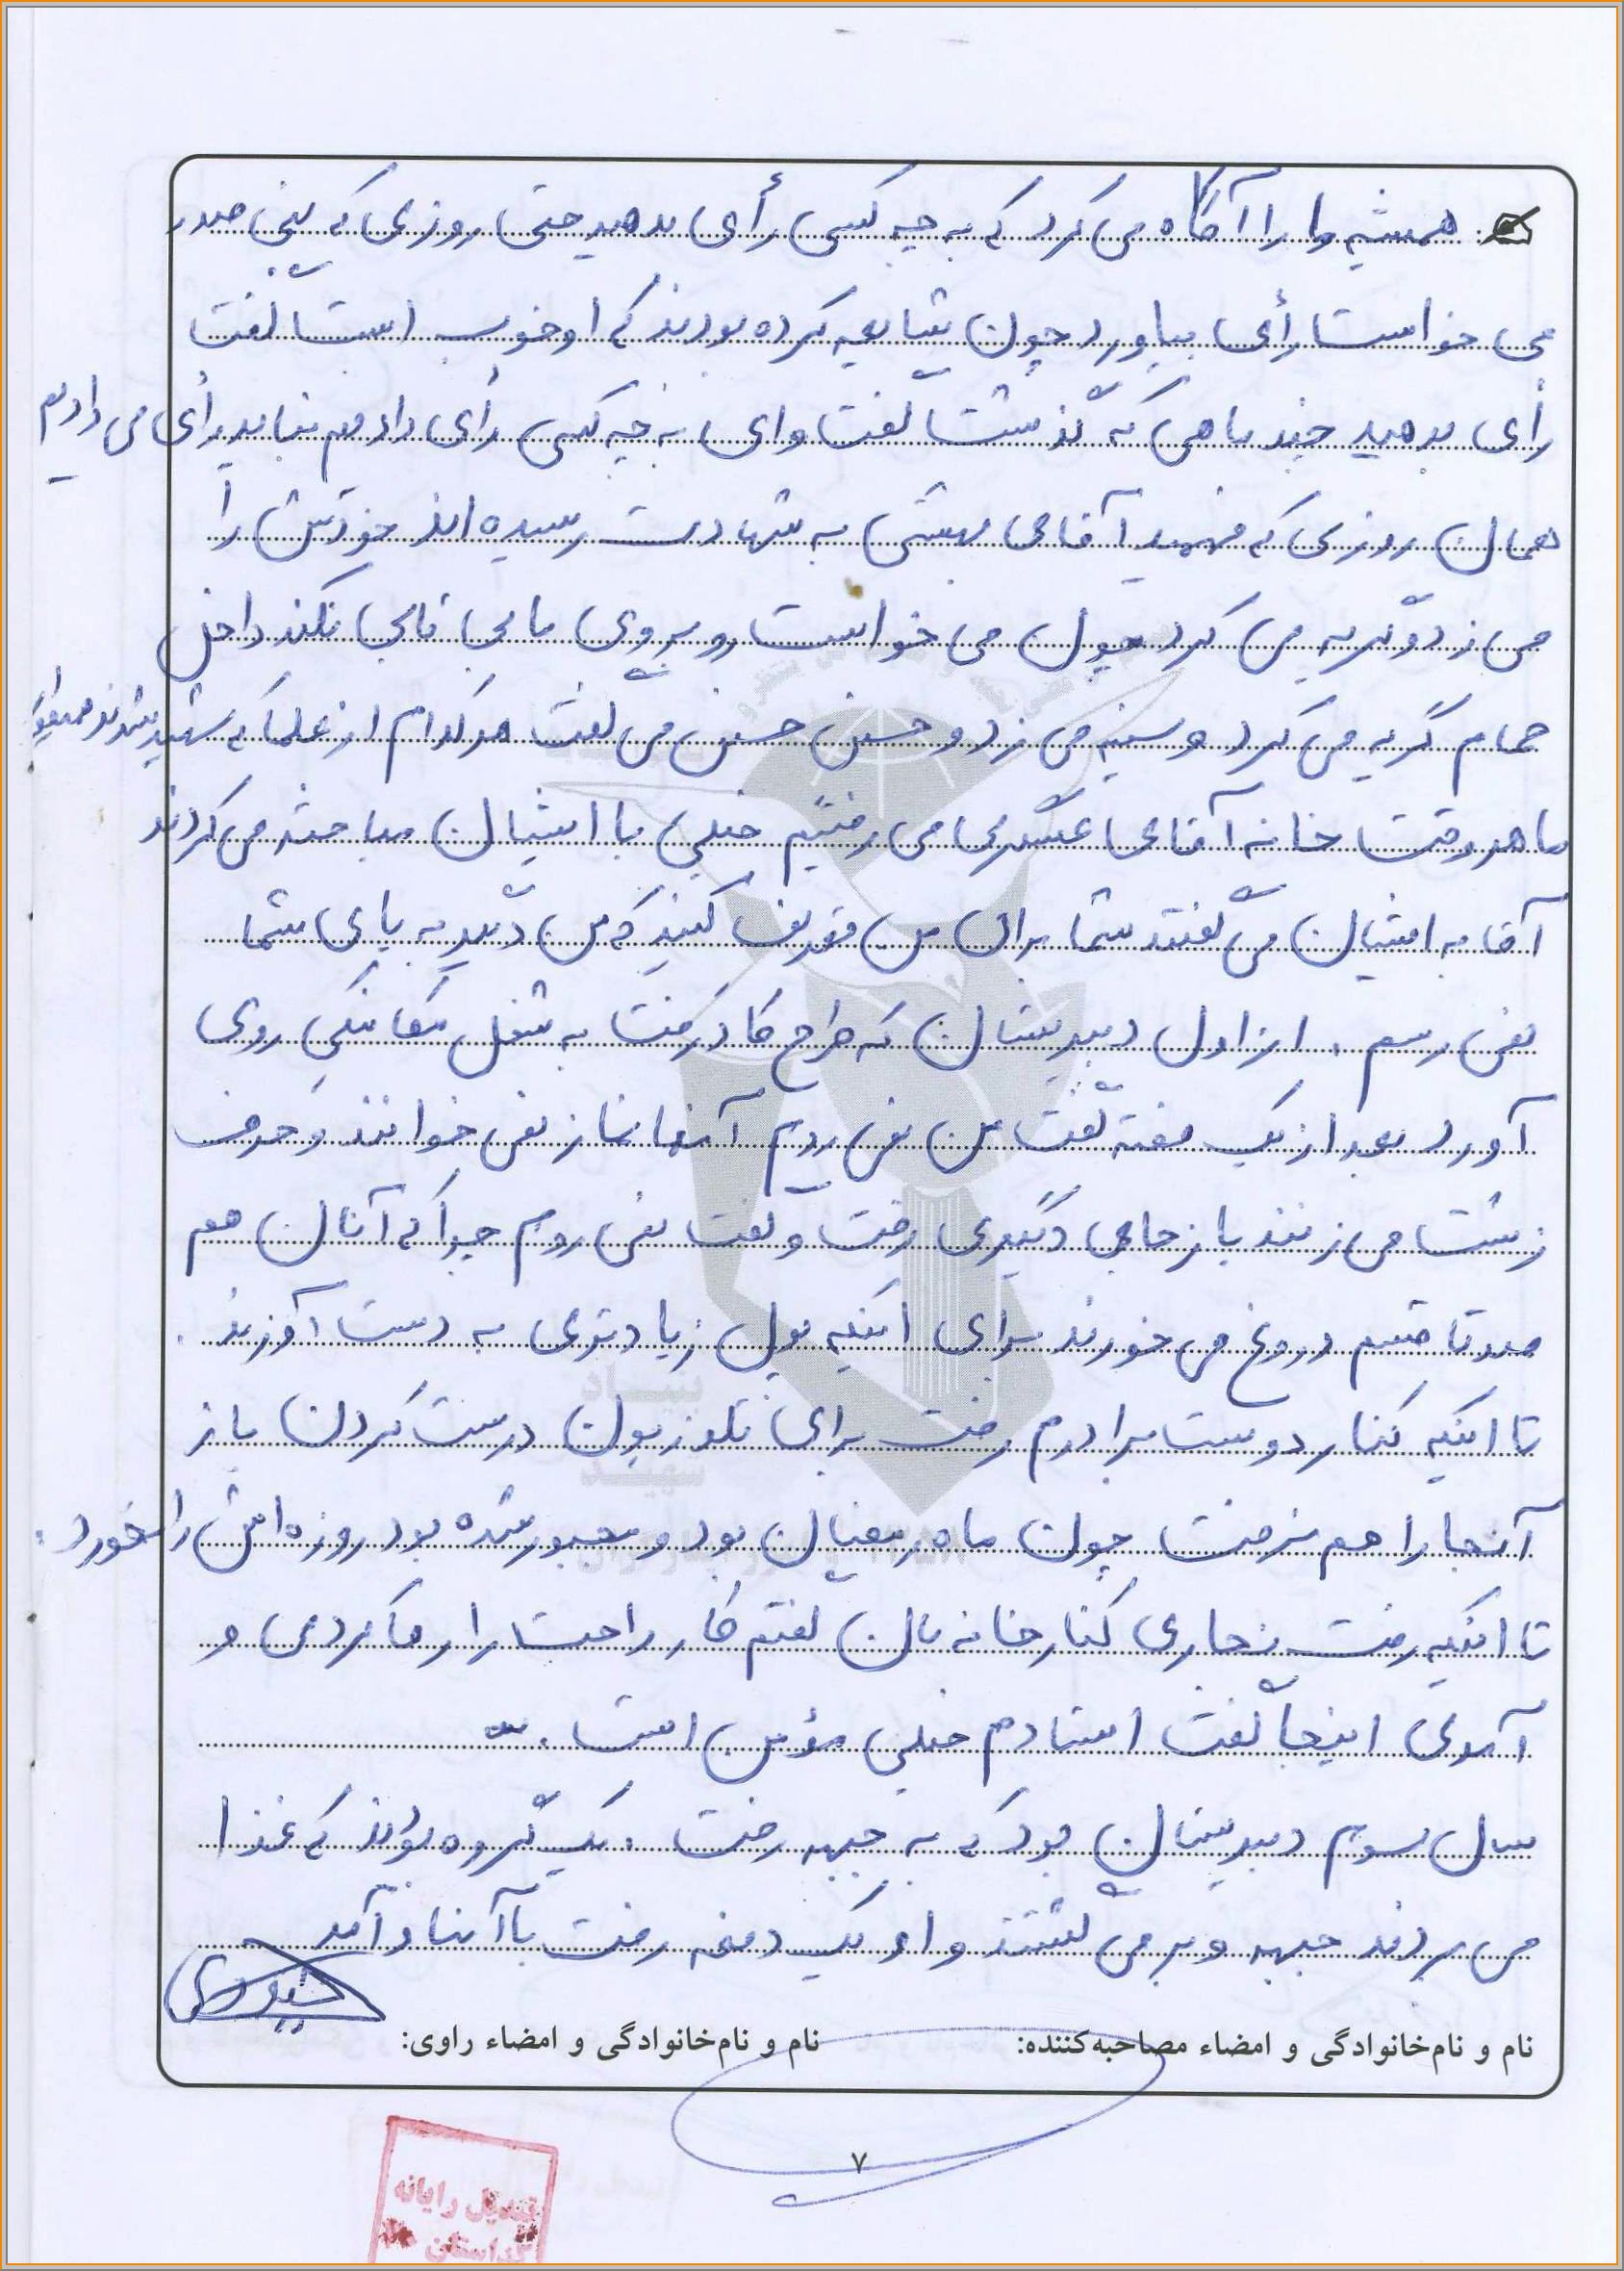 همیشه ما را آگاه می کرد که به چه کسی رأی بدهید حتی روزی که بنی صدر
می خواست رأی بیاورد چون شایعه کرده بودند که او خوب است گفت
رأی بدهید چند ماهی که گذشت گفت وای به چه کسی رأی دادم نباید رأی می دادیم
همان روزی که فهمید آقای بهشتی به شهادت رسیده اند خودش را
می زد و گریه می کرد چون می خواست روبروی ما بی تابی نکند داخل
حمام گریه می کرد و سینه می زد و حسین حسین می گفت هر کدام از علما که شهید شدند همینطور
ما هر وقت خانه آقای عسگری می رفتیم خیلی با ایشان مباحثه می کردند
آقا به ایشان می گفتند شما برای من تعریف کنید که من دیگر به پای شما
نمی رسم . از اول دبیرستان که طرح کاد رفت به شغل مکانیکی روی
آورد بعد از یک هفته گفت من نمی روم آنها نماز نمی خوانند و حرف
زشت می زنند باز جای دیگری رفت و گفت نمی روم چرا که آنان هم
صد تا قسم دروغ می خورند برای اینکه پول زیادتری به دست آورند .
تا اینکه کنار دوست برادرم رفت برای تلوزیون درست کردن باز
آنجا را هم نرفت چون ماه رمضان بود و مجبور شده بود روزه اش را بخورد .
تا اینکه رفت نجاری کنار خانه مان گفتم کار راحت را رها کردی و
آمدی اینجا گفت استادم خیلی مؤمن است .
سال سوم دبیرستان بود که به جبهه رفت . یک گروه بودند که غذا
می بردند جبهه و برمی گشتند و او یک دفعه رفت با آنها و آمد
نام و نام‌خانوادگی و امضاء مصاحبه‌کننده: نام و نام‌خانوادگی و امضاء راوی:
۷
رایانه